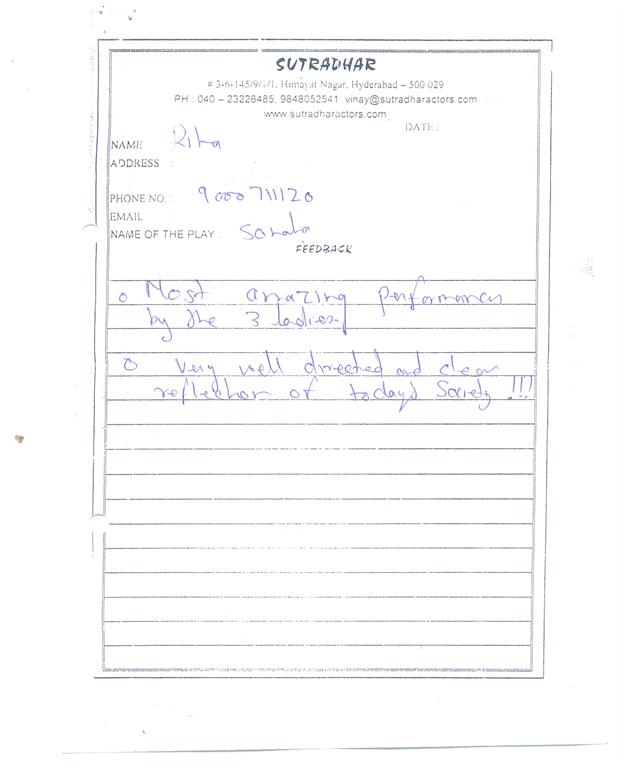 SUTRADHAR
# 3-6-145/9/1/1, Himayat Nagar, Hyderabad – 500 029
PH : 040 – 23226485, 9848052541 vinay@sutradharactors.com
www.sutradharactors.com
DATE :
NAME
ADDRESS :
PHONE NO. : 9000711120
EMAIL
NAME OF THE PLAY :
FEEDBACK
o Most amazing performances
by the 3 ladies
o Very well directed and clear
reflection of today's Society !!!